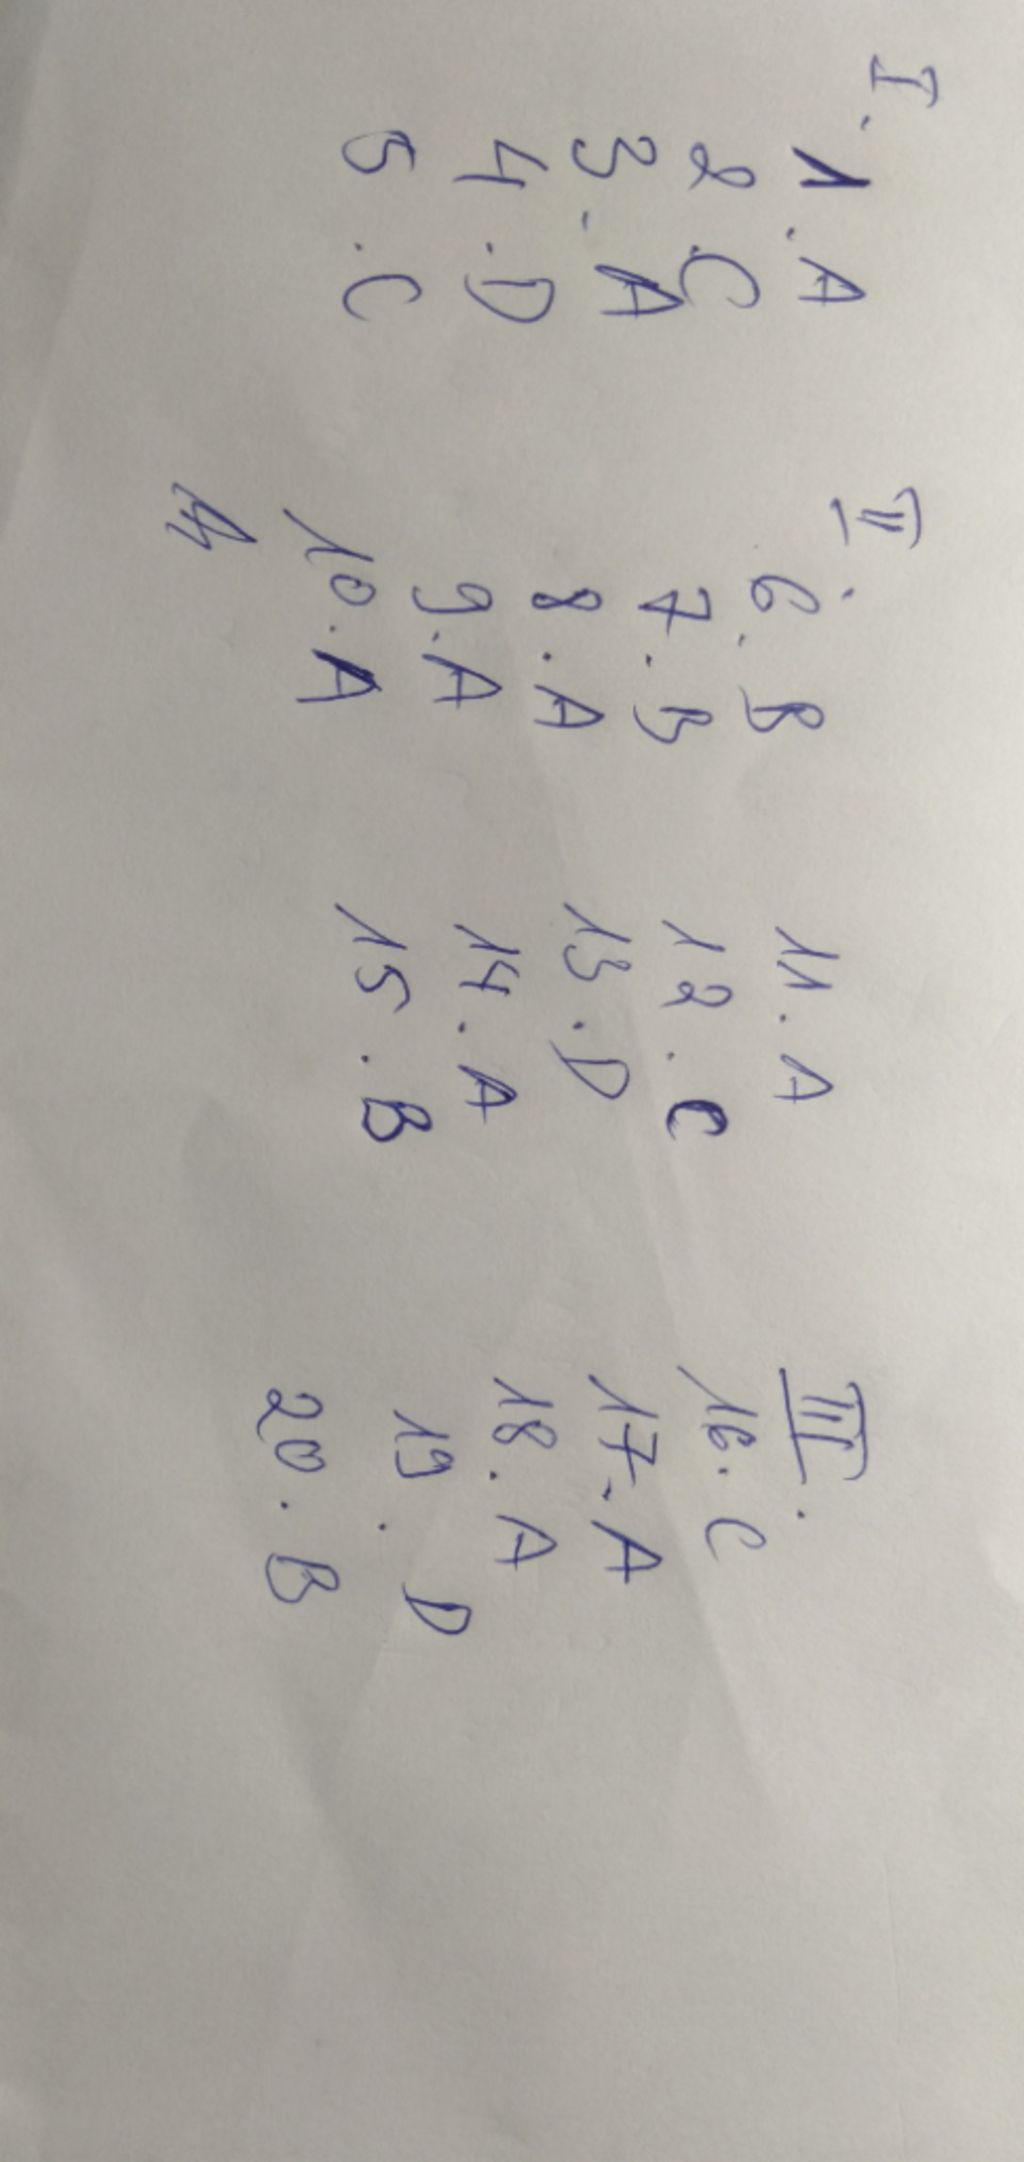 I.
1. A
2. C
3. A
4. D
5. C
II.
6. B
7. B
8. A
9. A
10. A
11. A
12. C
13. D
14. A
15. B
III.
16. C
17. A
18. A
19. D
20. B